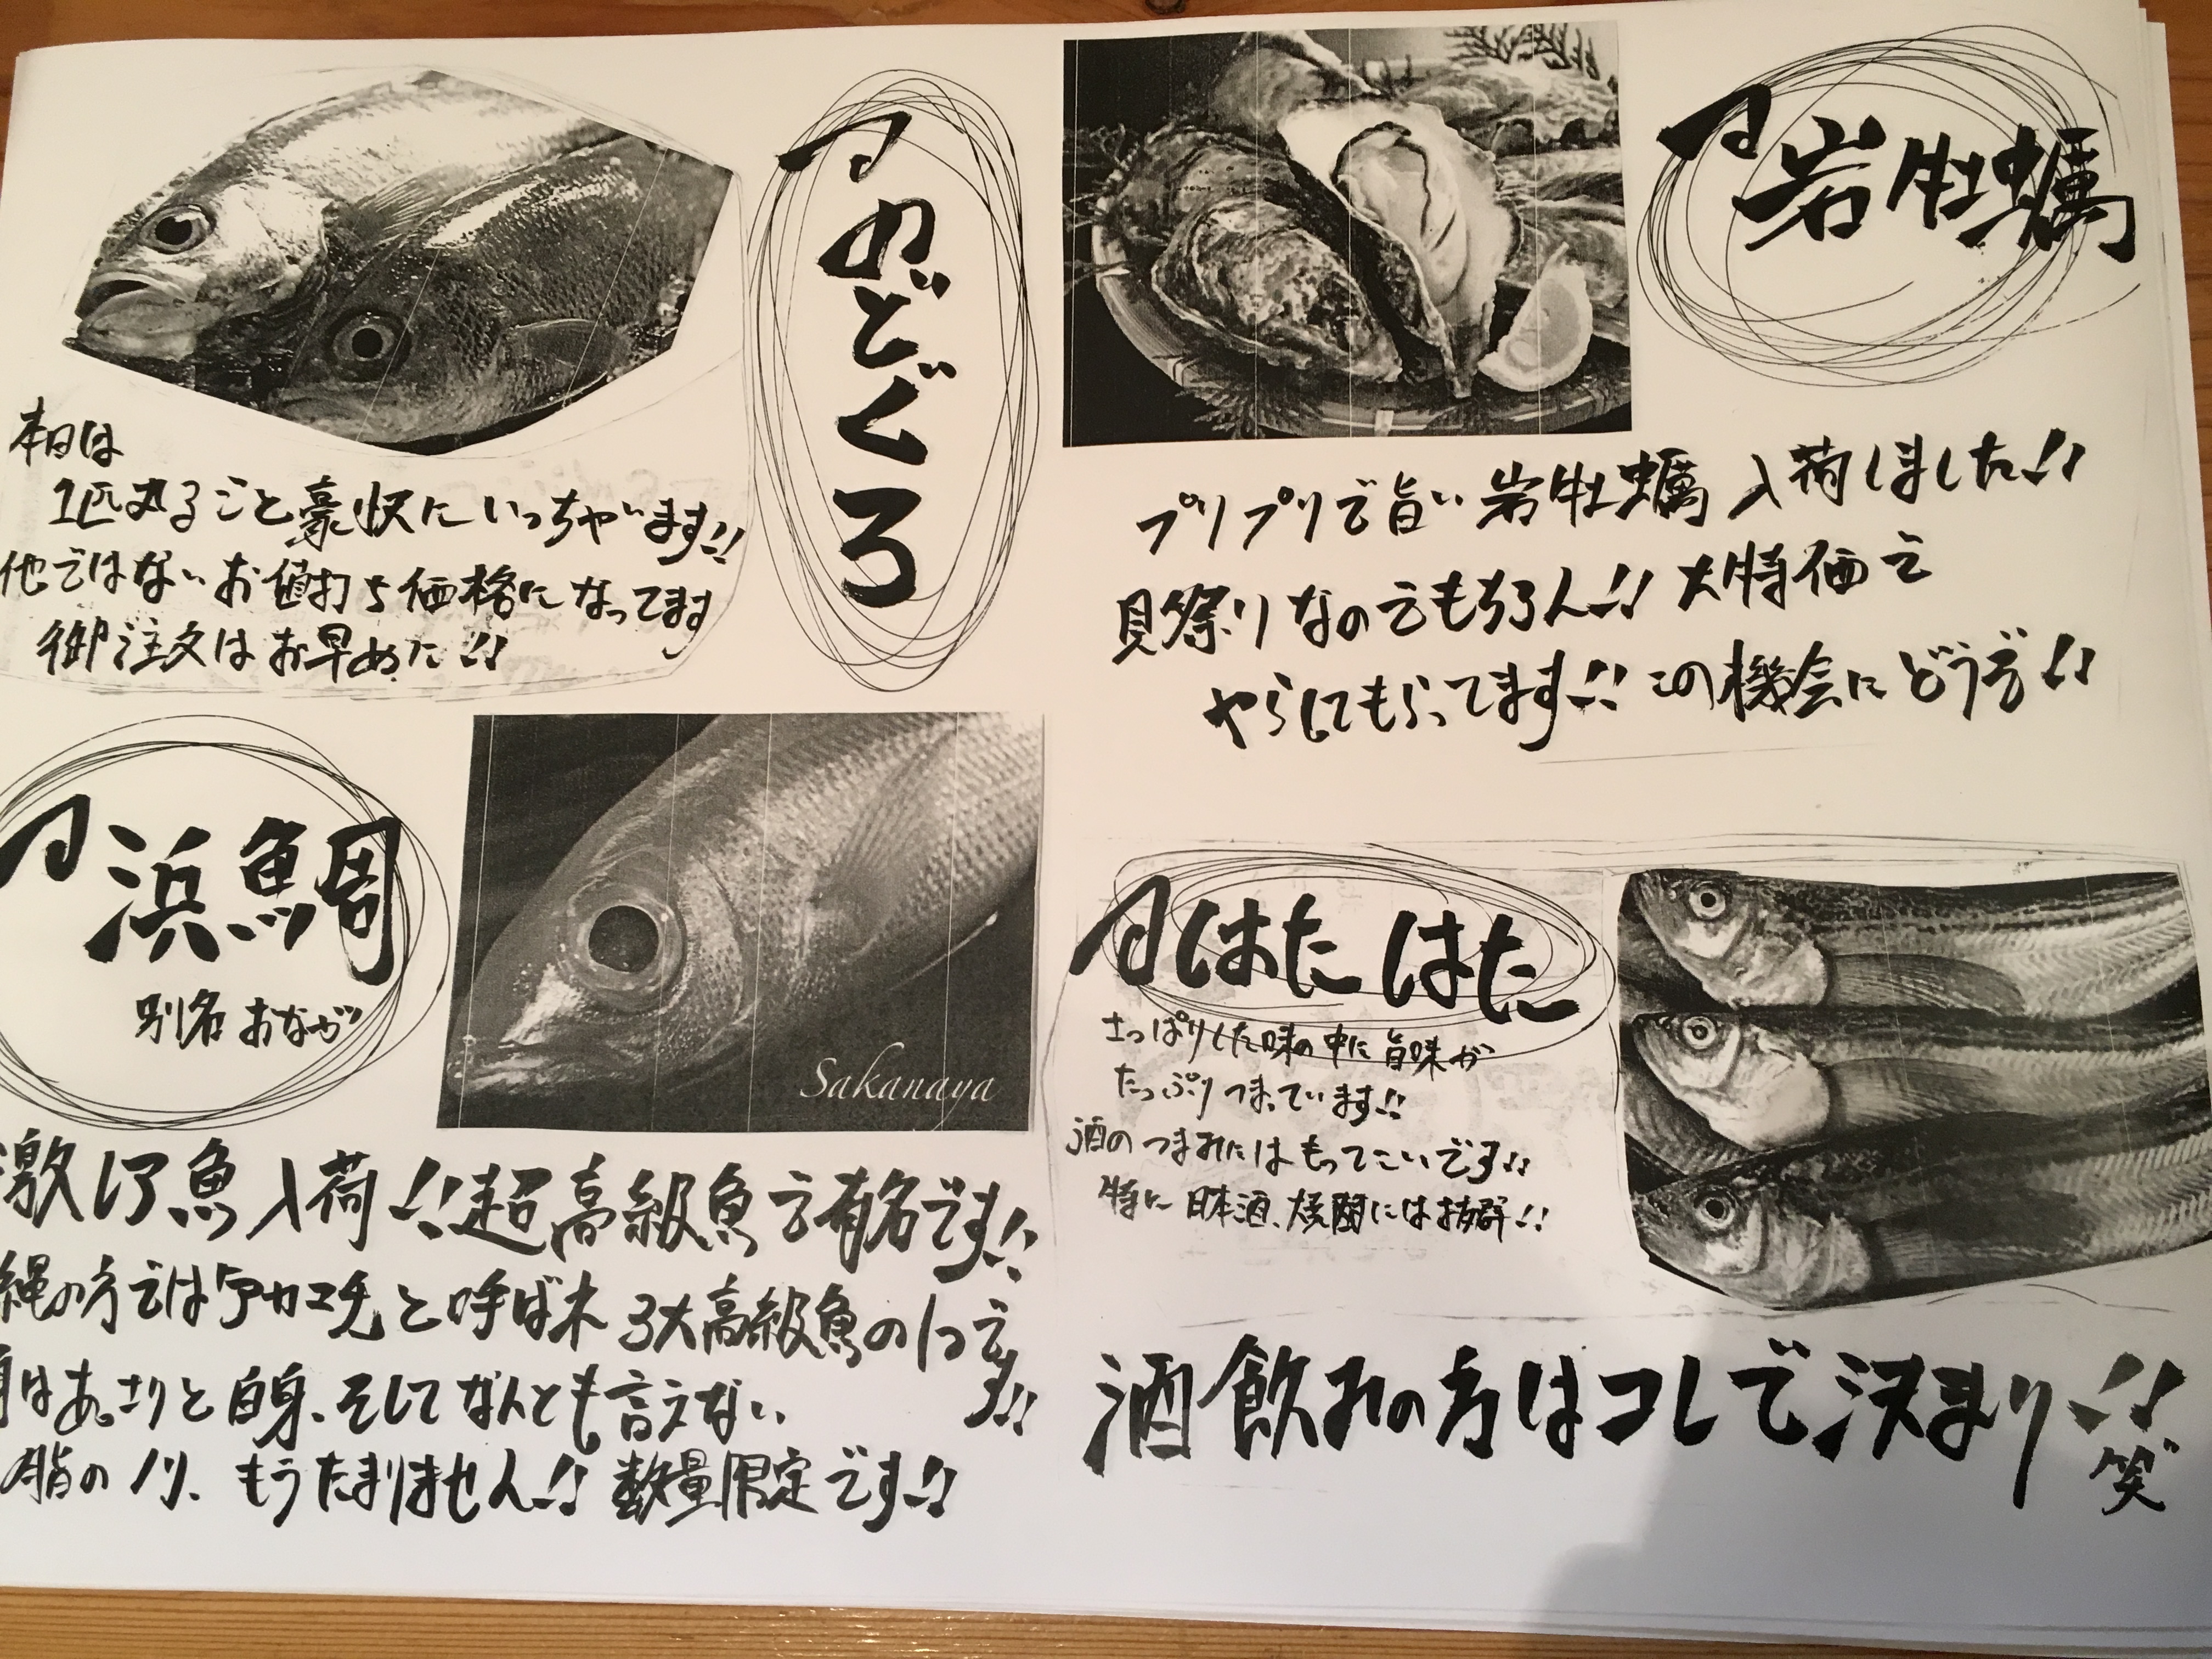 のどぐろ
本日は
1匹丸ごと豪快にいっちゃいます!!
他ではないお値打ち価格になってます
御注文はお早めに!!
岩牡蠣
プリプリで旨い岩牡蠣入荷しました!!
貝祭りなのでもちろん!!大特価で
やらしてもらってます!!この機会にどうぞ!!
浜鯛
別名 おなが
Sakanaya
激レア魚入荷!!超高級魚で有名です!!
縄の方ではアカマチと呼ばれ3大高級魚の1つで
す!!
身はあっさりと白身、そしてなんとも言えない
脂のノリ、もうたまりません!!数量限定です!!
はたはた
さっぱりした味の中に旨味が
たっぷりつまっています!!
酒のつまみにはもってこいです!!
特に日本酒、焼酎には抜群!!
酒飲みの方はコレで決まり!!
笑